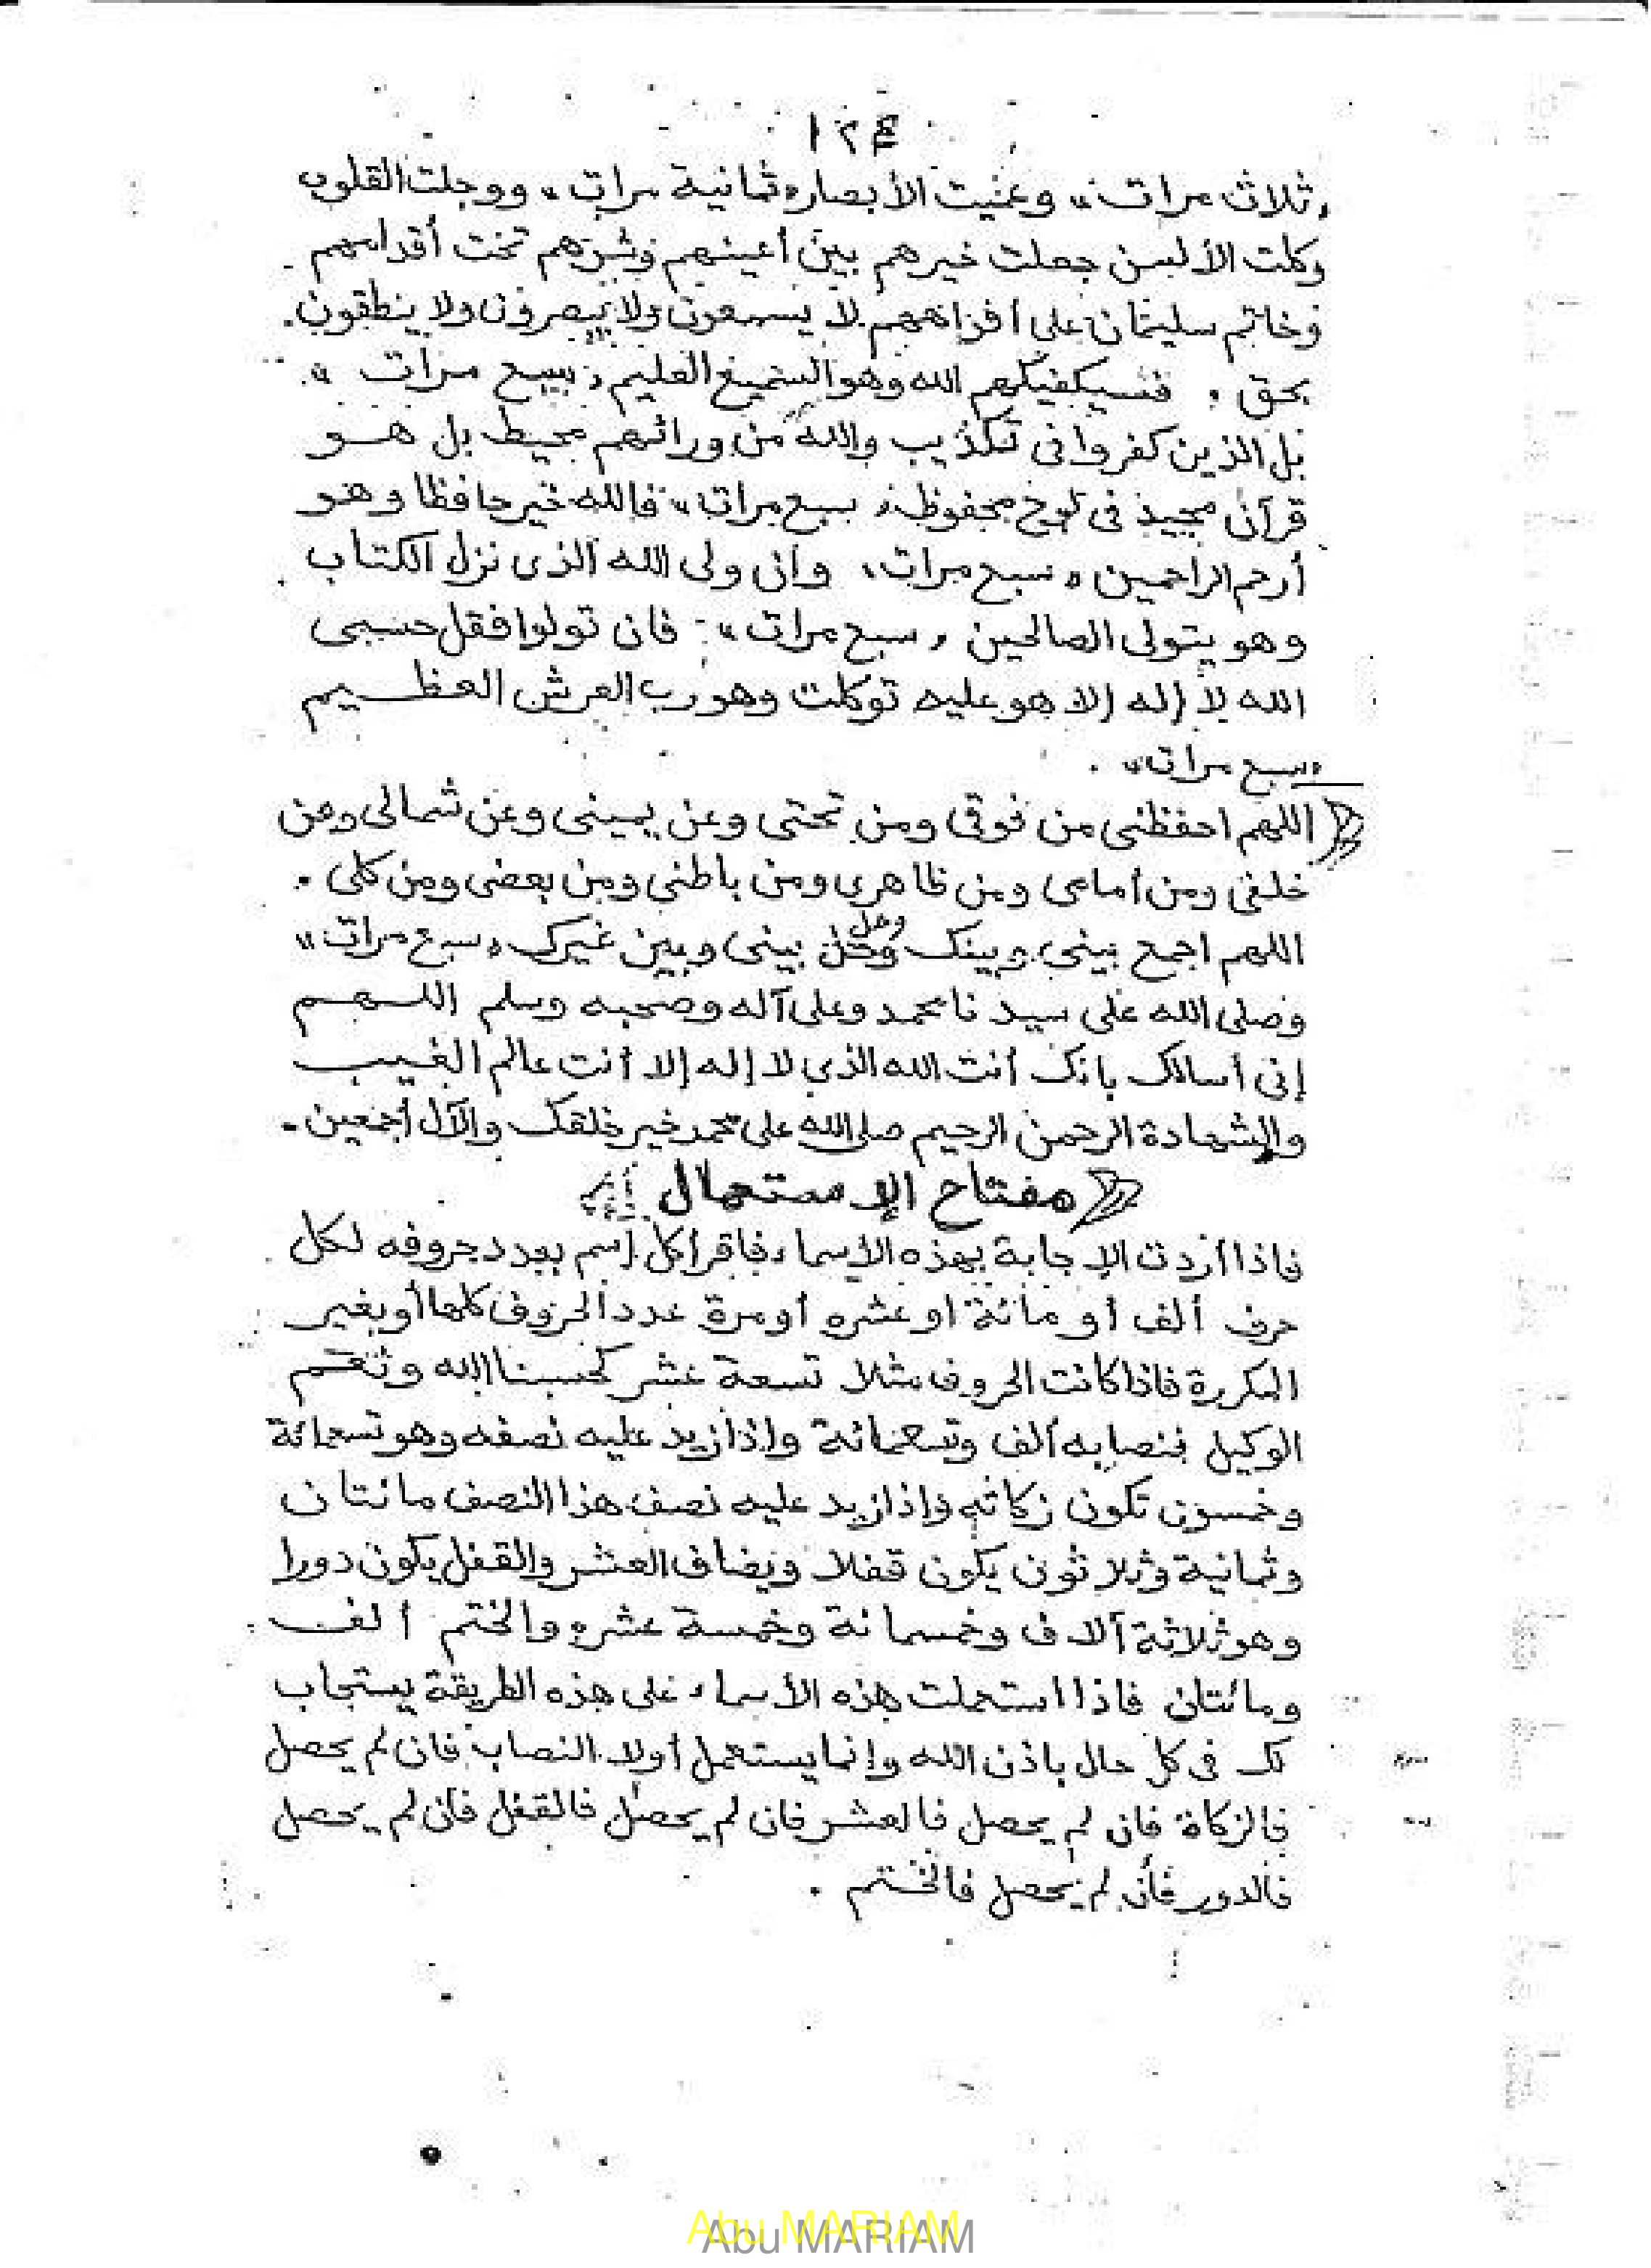 ١٢٤
«ثلاث مرات» وعميت الأبصار «ثمانية مرات» ووجلت القلوب
وكلت الألسن جعلت خيرهم بين أعينهم وشرهم تحت أقدامهم
وخاتم سليمان على أفواههم لا يسمعون ولا يبصرون ولا ينطقون
بحق . فسيكفيكهم الله وهو السميع العليم «سبع مرات» .
بل الذين كفروا فى تكذيب والله من ورائهم محيط بل هو
قرآن مجيد فى لوح محفوظ «سبع مرات» فالله خير حافظا وهو
أرحم الراحمين «سبع مرات» وان ولى الله الذى نزل الكتاب
وهو يتولى الصالحين «سبع مرات» فان تولوا فقل حسبى
الله لا إله إلا هو عليه توكلت وهو رب العرش العظيم
«سبع مرات» .
اللهم احفظنى من فوقى ومن تحتى وعن يمينى وعن شمالى ومن
خلفى ومن أمامى ومن ظاهرى ومن باطنى ومن بعضى ومن كلى .
اللهم اجمع بينى وبينك وحل بينى وبين غيرك «سبع مرات»
وصلى الله على سيدنا محمد وعلى آله وصحبه وسلم اللهم
إنى أسالك بانك أنت الله الذى لا إله إلا أنت عالم الغيب
والشهادة الرحمن الرحيم صلى الله على محمد خير خلقك والآل أجمعين .
مفتاح الإستعمال
فاذا أردت الإجابة بهذه الأسماء فاقرأ كل إسم بعدد حروفه لكل
حرف ألف أو مائة او عشره أو مرة عدد الحروف كلها أو بغير
المكررة فاذا كانت الحروف مثلا تسعة عشر كحسبنا الله ونعم
الوكيل فنصابه ألف وتسعمائة واذا زيد عليه نصفه وهو تسعمائة
وخمسون تكون زكاته واذا زيد عليه نصف هذا النصف مائتان
وثمانية وثلاثون يكون قفلا ويضاف العشر والقفل يكون دورا
وهو ثلاثة آلاف وخمسمائة وخمسة عشره والختم ألف
ومائتان فاذا استعملت هذه الأسماء على هذه الطريقة يستجاب
لك فى كل حال باذن الله وإنما يستعمل أولا النصاب فان لم يحصل
فالزكاة فان لم يحصل فالعشر فان لم يحصل فالقفل فان لم يحصل
فالدور فان لم يحصل فالختم .
Abu MARIAM